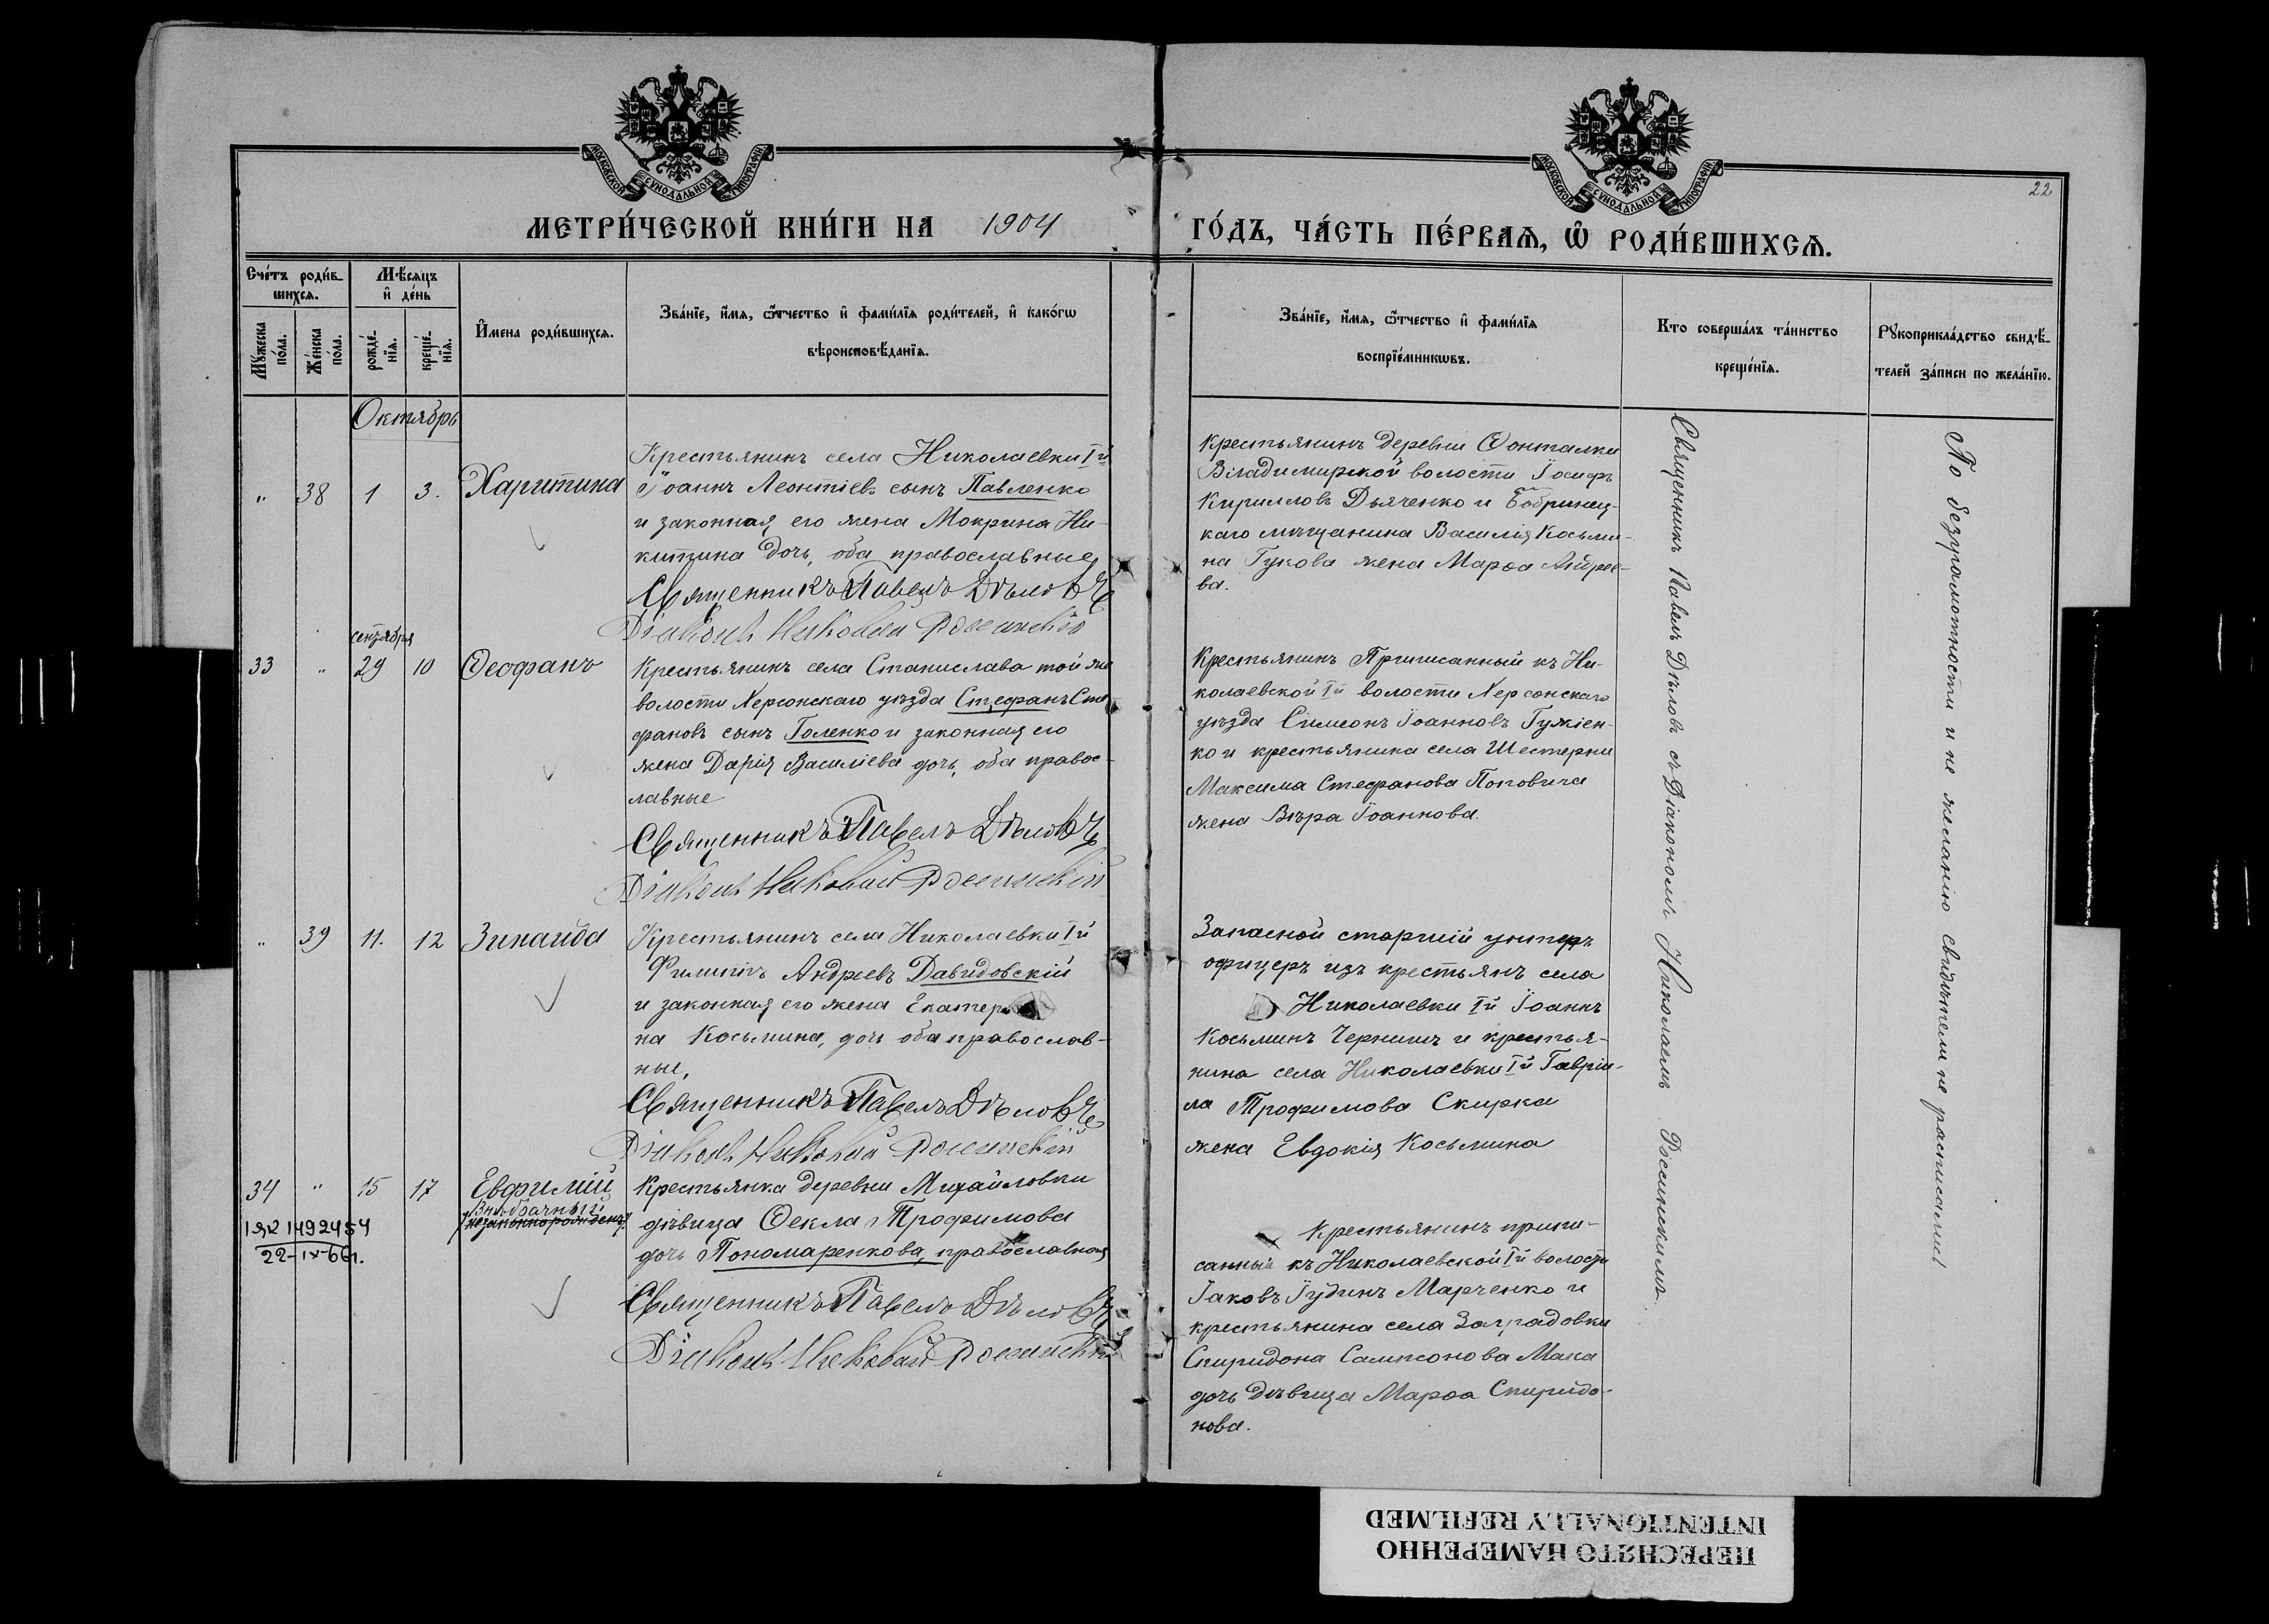 МОСКОВСКОЙ СѴНОДАЛЬНОЙ ТИПОГРАФІИ
МОСКОВСКОЙ СѴНОДАЛЬНОЙ ТИПОГРАФІИ
22
МЕТРИ́ЧЕСКОЙ КНИ́ГИ НА 1904 ГО́ДЪ, ЧА́СТЬ ПЕ́РВАѦ, Ѡ҆ РОДИ́ВШИХСѦ.
Сче́тъ роди́в-
шихсѧ.
Мѣ́сѧцъ
и҆ де́нь
Мꙋ́жеска
по́ла.
Же́нска
по́ла.
рожде́-
нїѧ.
креще́-
нїѧ.
И҆мена роди́вшихсѧ.
Зва́нїе, и҆́мѧ, ѻ҆́тчество и҆ фами́лїѧ роди́телей, и҆ како́гѡ
вѣроисповѣ́данїѧ.
Зва́нїе, и҆́мѧ, ѻ҆́тчество и҆ фами́лїѧ
воспрїе́мникѡвъ.
Кто соверша́лъ та́инство
креще́нїѧ.
Рꙋкоприкла́дство свидѣ́-
телей за́писи по жела́нїю.
Октябрь
" 38 1 3. Харитина
Крестьянинъ села Николаевки Iй
Іоаннъ Леонтіевъ сынъ Павленко
и законная его жена Мокрина Ни-
китина дочь, оба православные
Священникъ Павелъ Дѣловъ
Діаконъ Николай Россинскій
Крестьянинъ деревни Ѳонталки
Владимирской волости Іосифъ
Кирилловъ Дьяченко и Бобринец-
каго мѣщанина Василія Косьми-
на Гукова жена Марѳа Андрее-
ва.
сентября
33 " 29 10 Ѳеофанъ
Крестьянинъ села Станислава той же
волости Херсонскаго уѣзда Стефанъ Сте
фановъ сынъ Голенко и законная его
жена Дарія Василіева дочь, оба правос-
лавные
Священникъ Павелъ Дѣловъ
Діаконъ Николай Россинскій
Крестьянинъ Приписанный къ Ни-
колаевской Iй волости Херсонскаго
уѣзда Симеонъ Іоанновъ Гужіен-
ко и крестьянина села Шестерни
Максима Стефанова Поповича
жена Вѣра Іоаннова.
" 39 11. 12 Зинаида
Крестьянинъ села Николаевки Iй
Филиппъ Андреевъ Давидовскій
и законная его жена Екатери
на Косьмина, дочь оба православ-
ные,
Священникъ Павелъ Дѣловъ
Діаконъ Николай Россинскій
Запасной старшій унтеръ
офицеръ изъ крестьянъ села
Николаевки Iй Іоаннъ
Косьминъ Чернышъ и крестья-
нина села Николаевки Iй Гаврiи-
ла Трофимова Скирка
жена Евдокія Косьмина
34 " 15 17 Евфимій
Внѣбрачный
незаконнорожденъ
1492454
22-IX-66г.
Крестьянка деревни Михайловки
дѣвица Ѳекла Трофимова
дочь Пономаренкова, православная
Священникъ Павелъ Дѣловъ
Діаконъ Николай Россинскій
Крестьянинъ припи-
санный къ Николаевской Iй волости
Іаковъ Іудинъ Марченко и
крестьянина села Заградовки
Спиридона Сампсонова Мака
дочь дѣвица Марѳа Спиридо-
нова.
Священникъ Павелъ Дѣловъ съ Діакономъ Николаемъ Россинскимъ.
По безграмотности и не желанію свидѣтели не расписались
ПЕРЕСНЯТО НАМЕРЕННО
INTENTIONALLY REFILMED